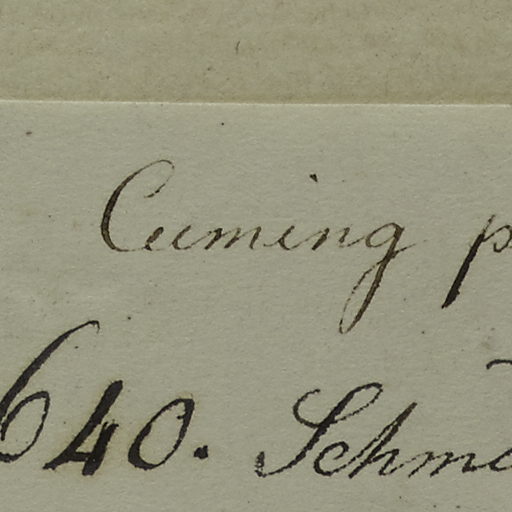 Cuming p
640. Schm